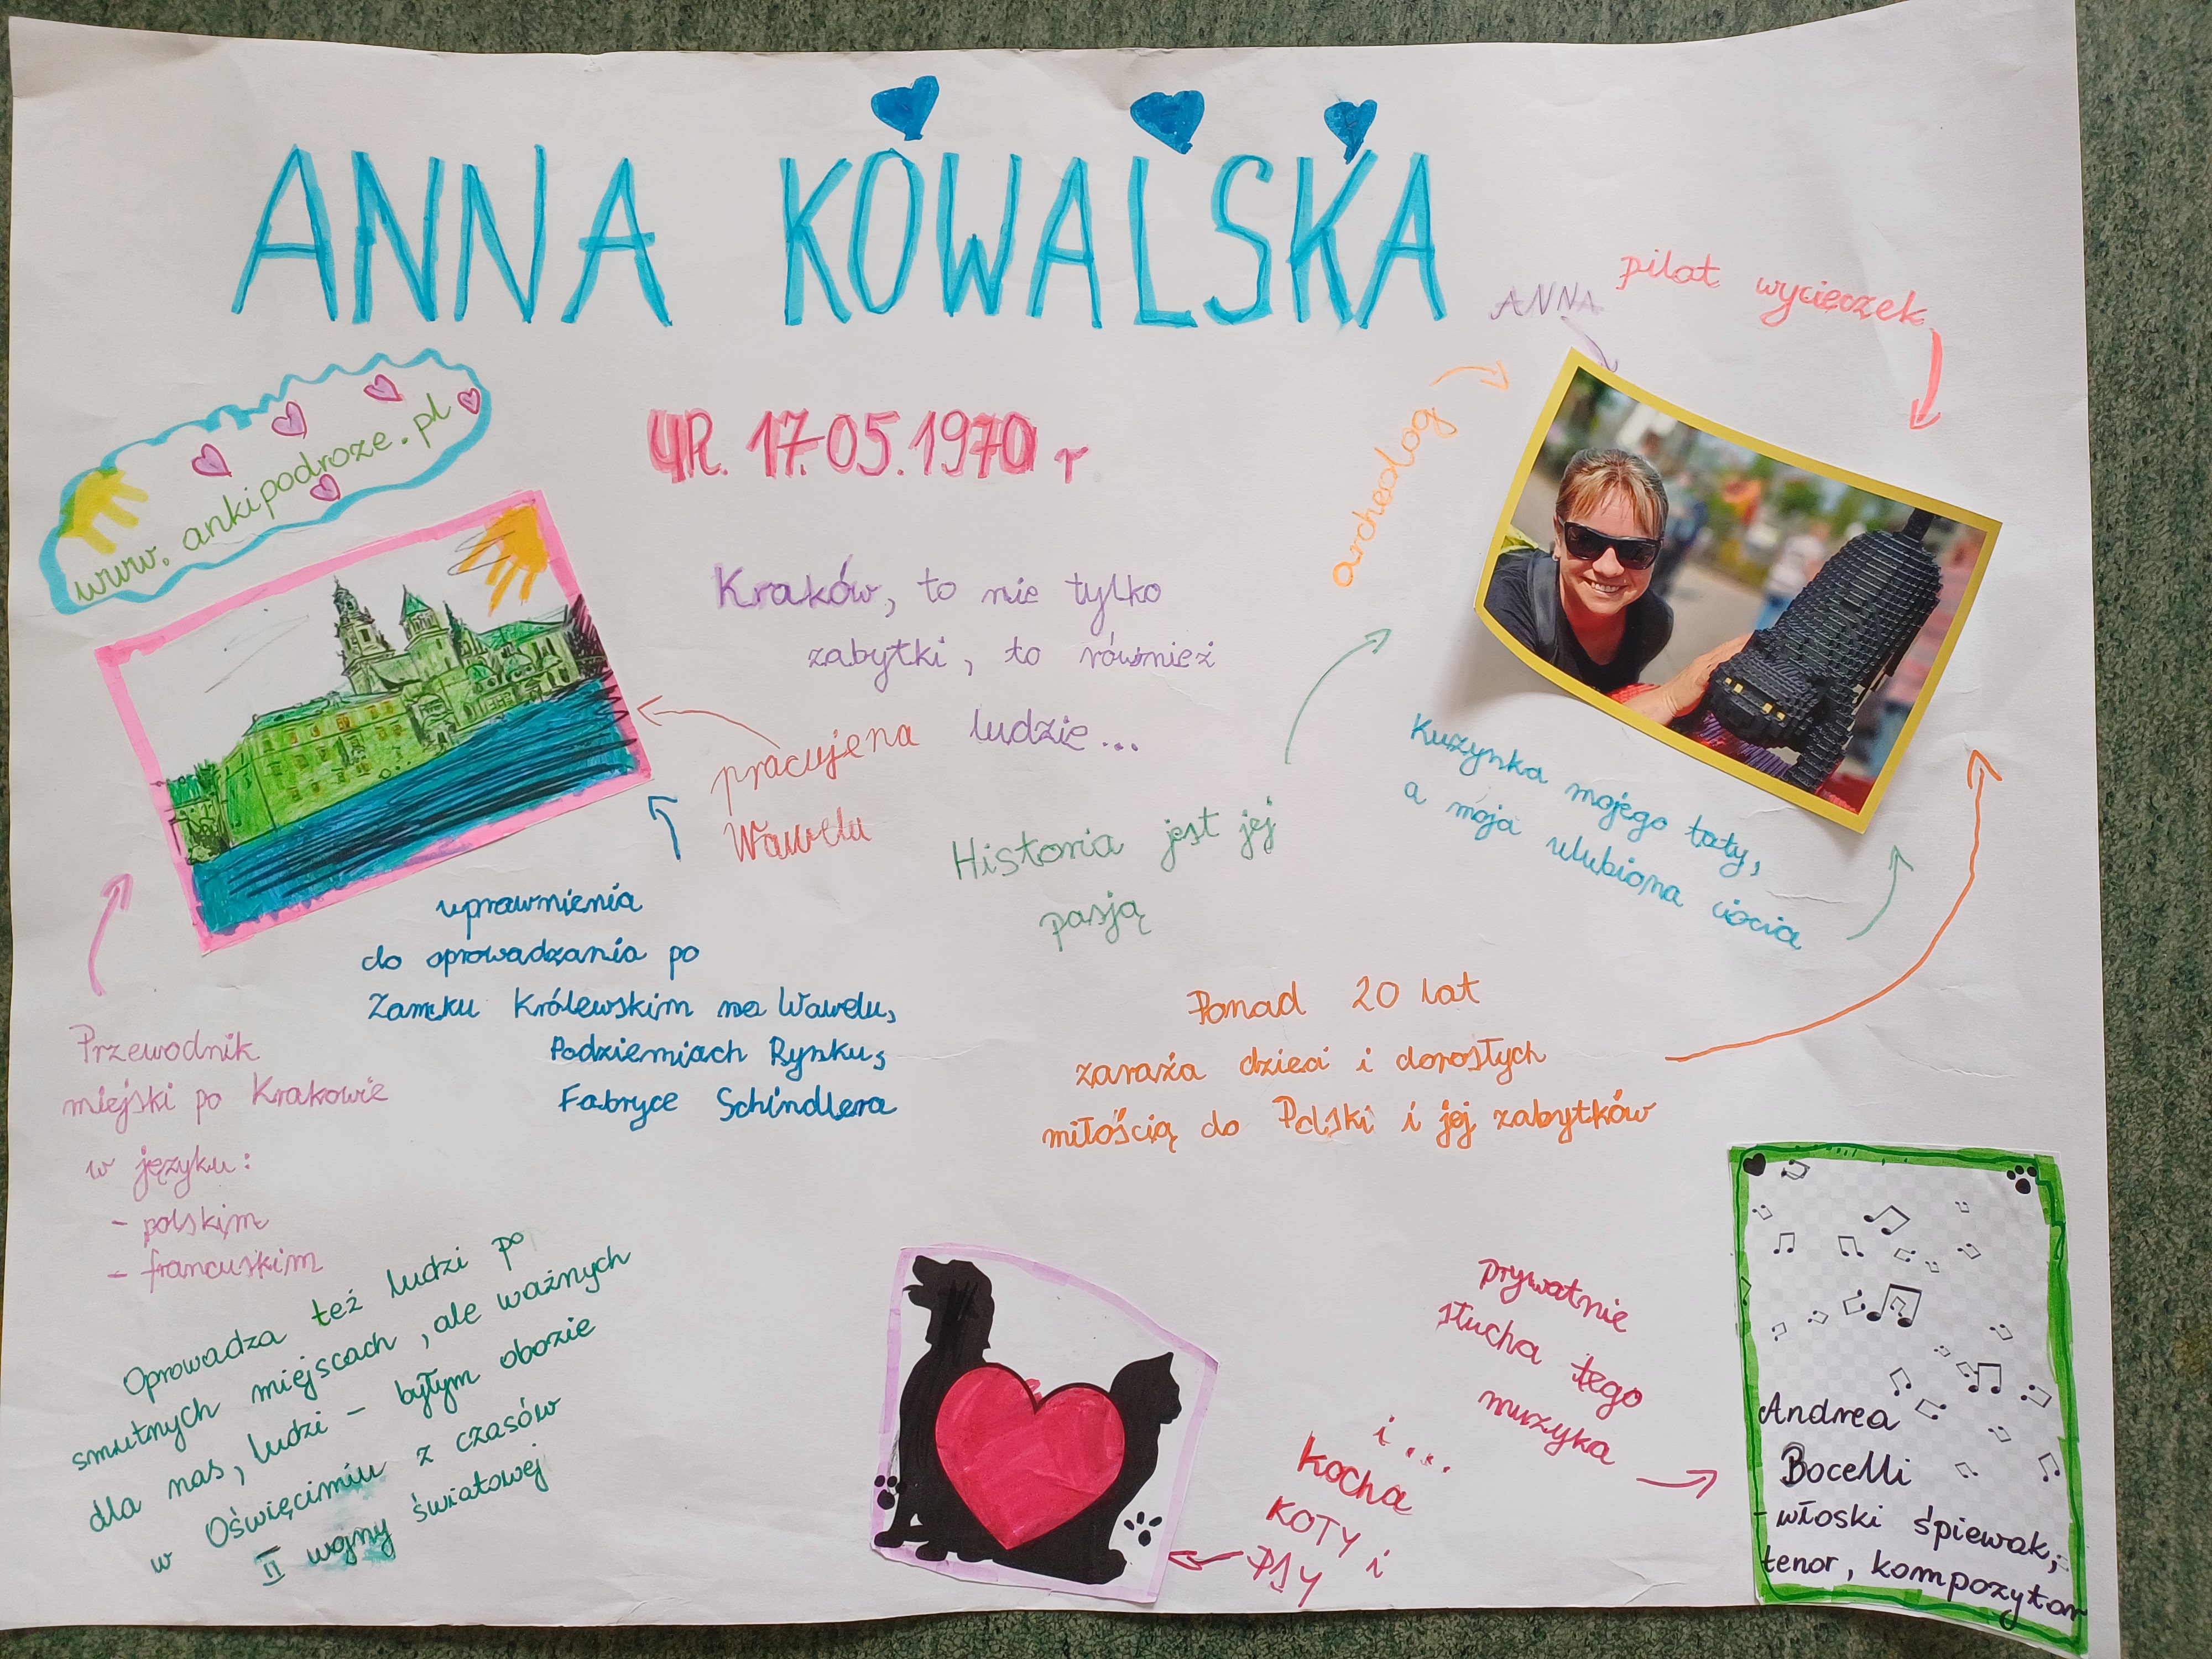 ANNA KOWALSKA
UR. 17.05.1970 r
www.ankipodroze.pl
ANNA
pilot wycięczek
archeolog
Kraków, to nie tylko
zabytki, to również
ludzie...
pracujena
Wawelu
Historia jest jej
pasją
Kuzynka mojego taty,
a moja ulubiona ciocia
uprawnienia
do oprowadzania po
Zamku Królewskim na Wawelu,
Podziemiach Rynku,
Fabryce Schindlera
Ponad 20 lat
zaraża dzieci i dorosłych
miłością do Polski i jej zabytków
Przewodnik
miejski po Krakowie
w języku:
- polskim
- francuskim
Oprowadza też ludzi po
smutnych miejscach, ale ważnych
dla nas, ludzi - byłym obozie
w Oświęcimiu z czasów
II wojny światowej
prywatnie
słucha tego
muzyka
i...
kocha
KOTY i
PSY
Andrea
Bocelli
- włoski śpiewak,
tenor, kompozytor